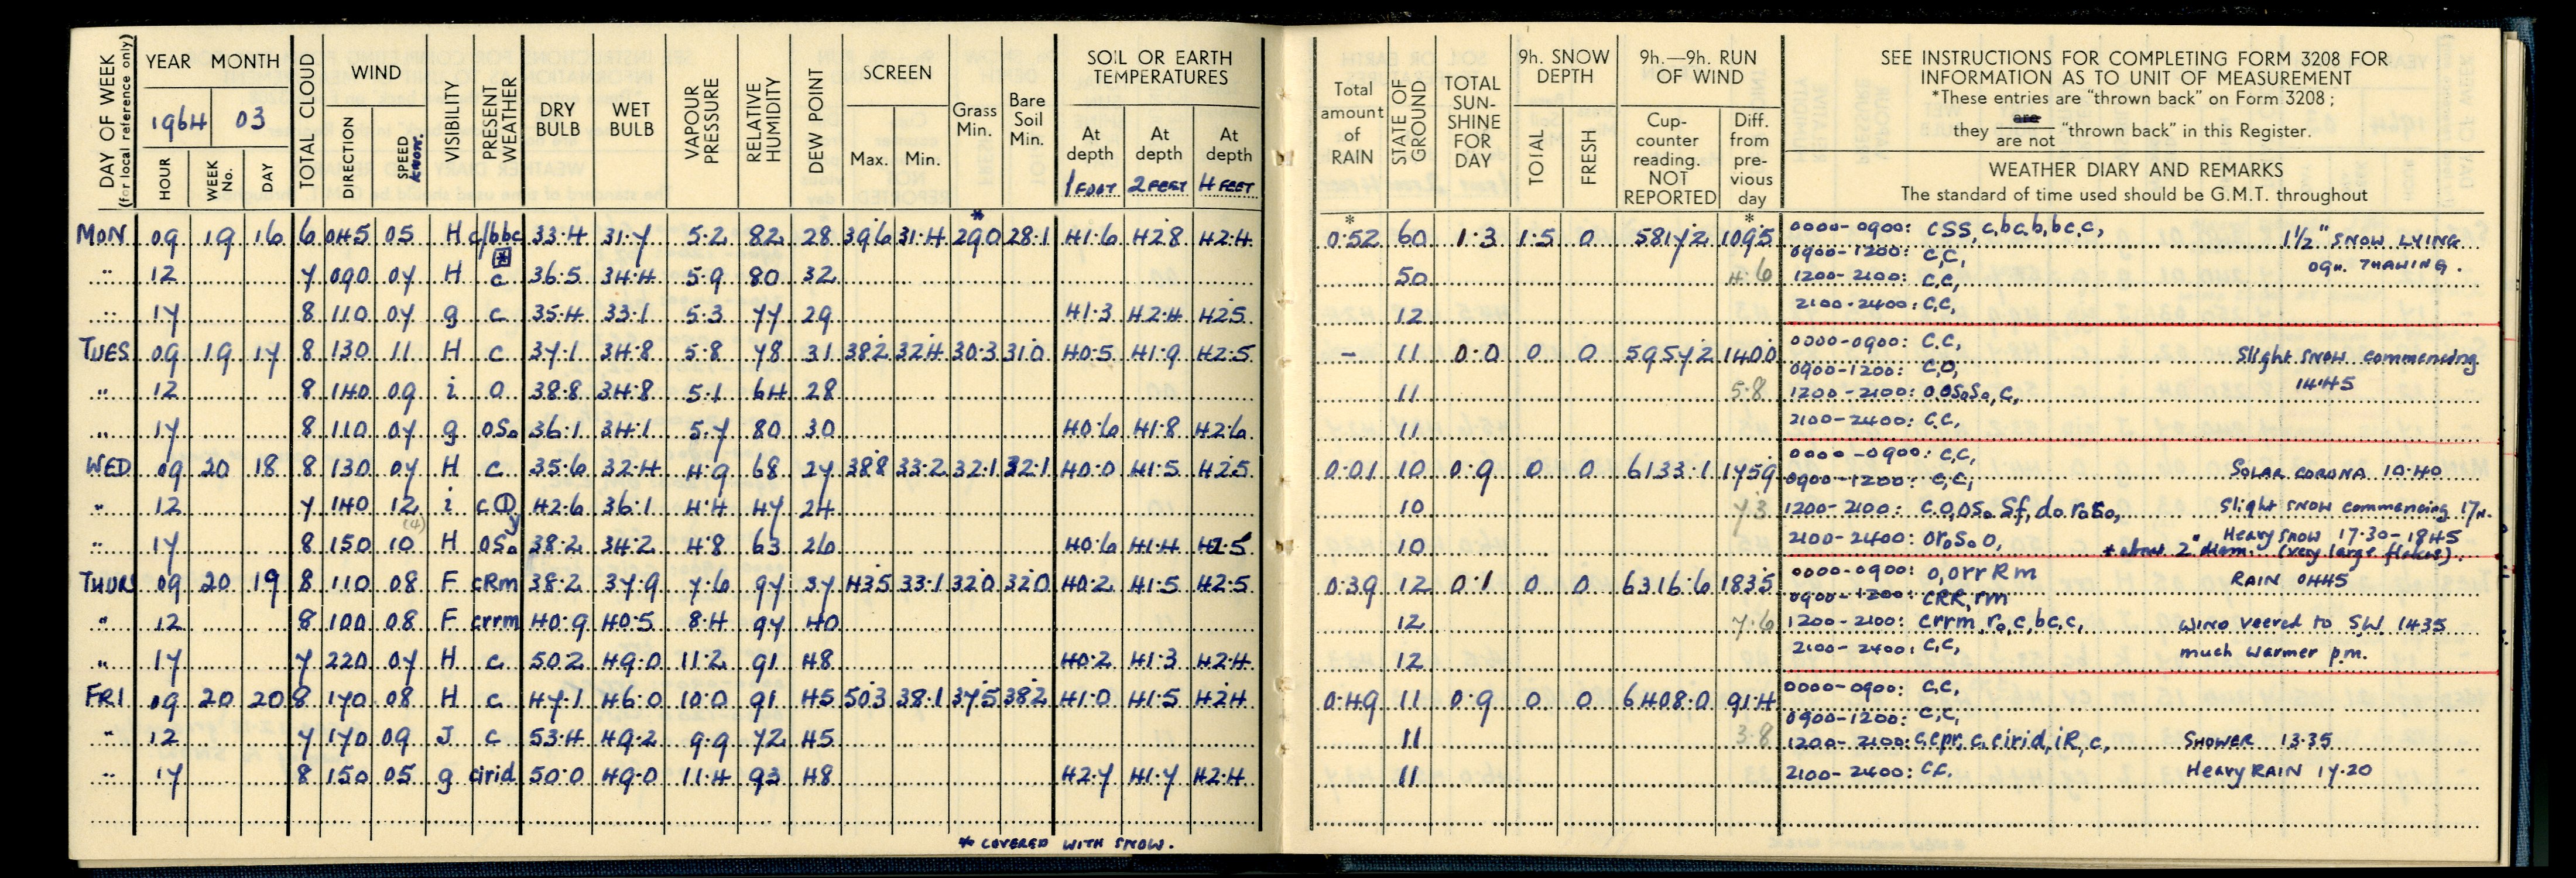 DAY OF WEEK
(for local reference only)
YEAR MONTH
1964 03
HOUR
WEEK No.
DAY
TOTAL CLOUD
WIND
DIRECTION
SPEED
KNOTS.
VISIBILITY
PRESENT WEATHER
DRY BULB
WET BULB
VAPOUR PRESSURE
RELATIVE HUMIDITY
DEW POINT
SCREEN
Max. Min.
Grass Min.
Bare Soil Min.
SOIL OR EARTH
TEMPERATURES
At depth At depth At depth
1 FOOT 2 FEET 4 FEET
*
MON 09 19 16 6 045 05 H c/bbc 33.4 31.7 5.2 82 28 39.6 31.4 29.0 28.1 41.6 42.8 42.4
" 12 7 090 07 H c 36.5 34.4 5.9 80 32
" 17 8 110 07 g c 35.4 33.1 5.3 77 29 41.3 42.4 42.5
TUES 09 19 17 8 130 11 H c 37.1 34.8 5.8 78 31 38.2 32.4 30.3 31.0 40.5 41.9 42.5
" 12 8 140 09 i o 38.8 34.8 5.1 64 28
" 17 8 110 07 g oso 36.1 34.1 5.7 80 30 40.6 41.8 42.6
WED 09 20 18 8 130 07 H c 35.6 32.4 4.9 68 27 38.8 33.2 32.1 32.1 40.0 41.5 42.5
" 12 7 140 12 i c⦶ 42.6 36.1 4.4 47 24
(4)
" 17 8 150 10 H oso 38.2 34.2 4.8 63 26 40.6 41.4 42.5
THUR 09 20 19 8 110 08 F cRm 38.2 37.9 7.6 97 37 43.5 33.1 32.0 32.0 40.2 41.5 42.5
" 12 8 100 08 F crrm 40.9 40.5 8.4 97 40
" 17 7 220 07 H c 50.2 49.0 11.2 91 48 40.2 41.3 42.4
FRI 09 20 20 8 170 08 H c 47.1 46.0 10.0 91 45 50.3 38.1 37.5 38.2 41.0 41.5 42.4
" 12 7 170 09 J c 53.4 49.2 9.9 72 45
" 17 8 150 05 g cirid 50.0 49.0 11.4 93 48 42.7 41.7 42.4
* COVERED WITH SNOW.
Total amount of RAIN
STATE OF GROUND
TOTAL SUN-SHINE FOR DAY
9h. SNOW DEPTH
TOTAL
FRESH
9h.—9h. RUN OF WIND
Cup-counter reading. NOT REPORTED
Diff. from pre-vious day
SEE INSTRUCTIONS FOR COMPLETING FORM 3208 FOR
INFORMATION AS TO UNIT OF MEASUREMENT
*These entries are "thrown back" on Form 3208;
they are / are not "thrown back" in this Register.
WEATHER DIARY AND REMARKS
The standard of time used should be G.M.T. throughout
* *
0.52 60 1.3 1.5 0 5817.2 109.5 0000-0900: CSS, c,bc,b,bc,c, 1½" SNOW LYING
0900-1200: C,C, 09H. THAWING.
50 4.6 1200-2100: C,C,
12 2100-2400: C,C,
- 11 0.0 0 0 5957.2 140.0 0000-0900: C,C, Slight SNOW commencing
0900-1200: C,O, 14.45
11 5.8 1200-2100: O,OSoSo,C,
11 2100-2400: C,C,
0.01 10 0.9 0 0 6133.1 175.9 0000-0900: C,C, SOLAR CORONA 10.40
0900-1200: C,C,
10 7.3 1200-2100: C,O,OSo Sf, do roso, Slight SNOW commencing 17H.
10 2100-2400: OroSoO, Heavy SNOW 17.30-18.45
* about 2" diam. (very large flakes).
0.39 12 0.1 0 0 6316.6 183.5 0000-0900: O,OrrRm RAIN 0445
0900-1200: CRR,rm
12 7.6 1200-2100: crrm, ro, c,bc,c, WIND veered to S.W. 1435
12 2100-2400: C,C, much warmer p.m.
0.49 11 0.9 0 0 6408.0 91.4 0000-0900: C,C,
0900-1200: C,C,
11 3.8 1200-2100: c,cpr, c, cirid, iR, c, SHOWER 13.35
11 2100-2400: CC. Heavy RAIN 17.20